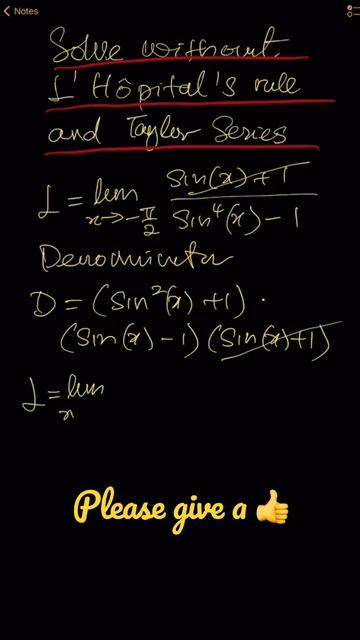 Notes
Solve without
L'Hôpital's rule
and Taylor Series
L = lim x→-π/2 (sin(x)+1)/(sin⁴(x)-1)
Denominator
D = (sin²(x)+1)·
(sin(x)-1)(sin(x)+1)
L = lim x
Please give a 👍